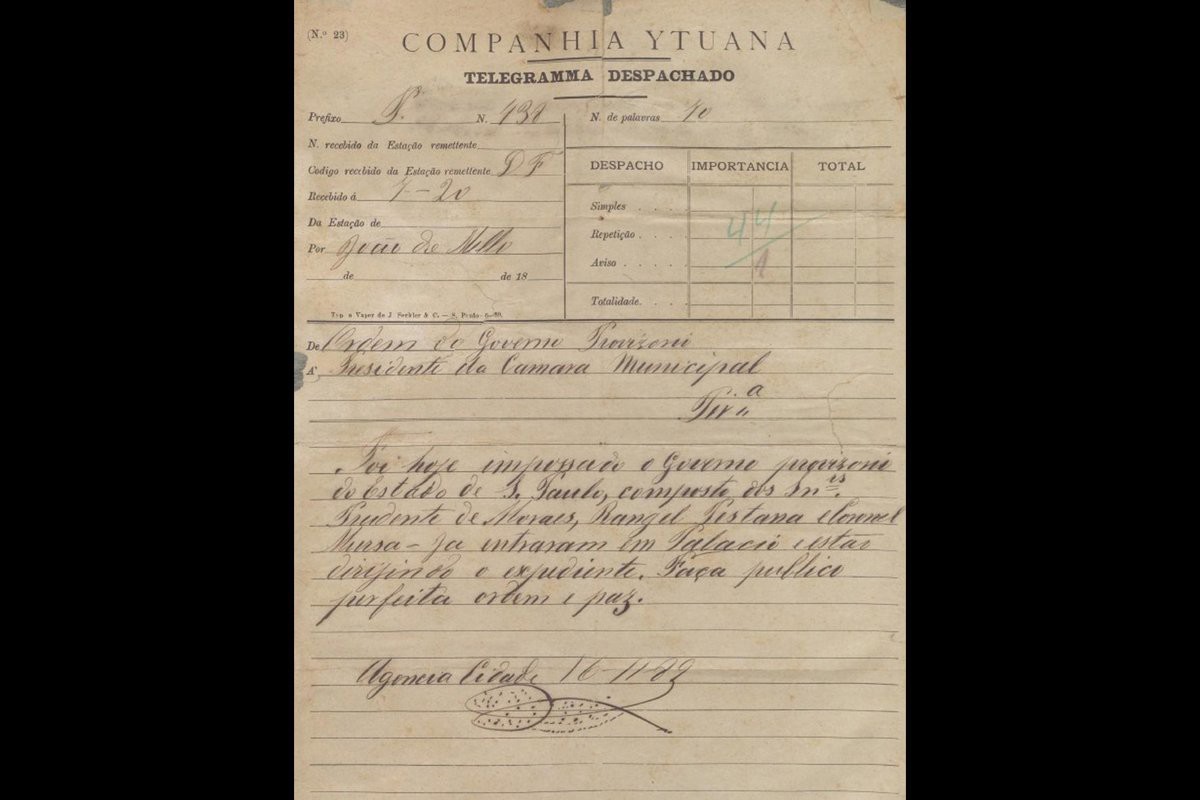 (N.º 23)
COMPANHIA YTUANA
TELEGRAMMA DESPACHADO
Prefixo S. N. 438 N. de palavras 40
N. recebido da Estação remettente
Codigo recebido da Estação remettente D F
Recebido á 7-20
Da Estação de
Por João de Mello
de de 18
DESPACHO IMPORTANCIA TOTAL
Simples
Repetição
Aviso
Totalidade
44
1
Typ. a Vapor de J. Seckler & C. — S. Paulo
De Ordem do Governo Provizorio
A' Presidente da Camara Municipal
Pir.ª
Foi hoje impossado o Governo provizorio
do Estado de S. Paulo, composto dos
Prudente de Moraes, Rangel Pestana e Coronel
Mursa - ja entraram em Palacio e estão
dirigindo o expediente. Faça publico
perfeita ordem e paz.
Agencia Cidade 16-11-89